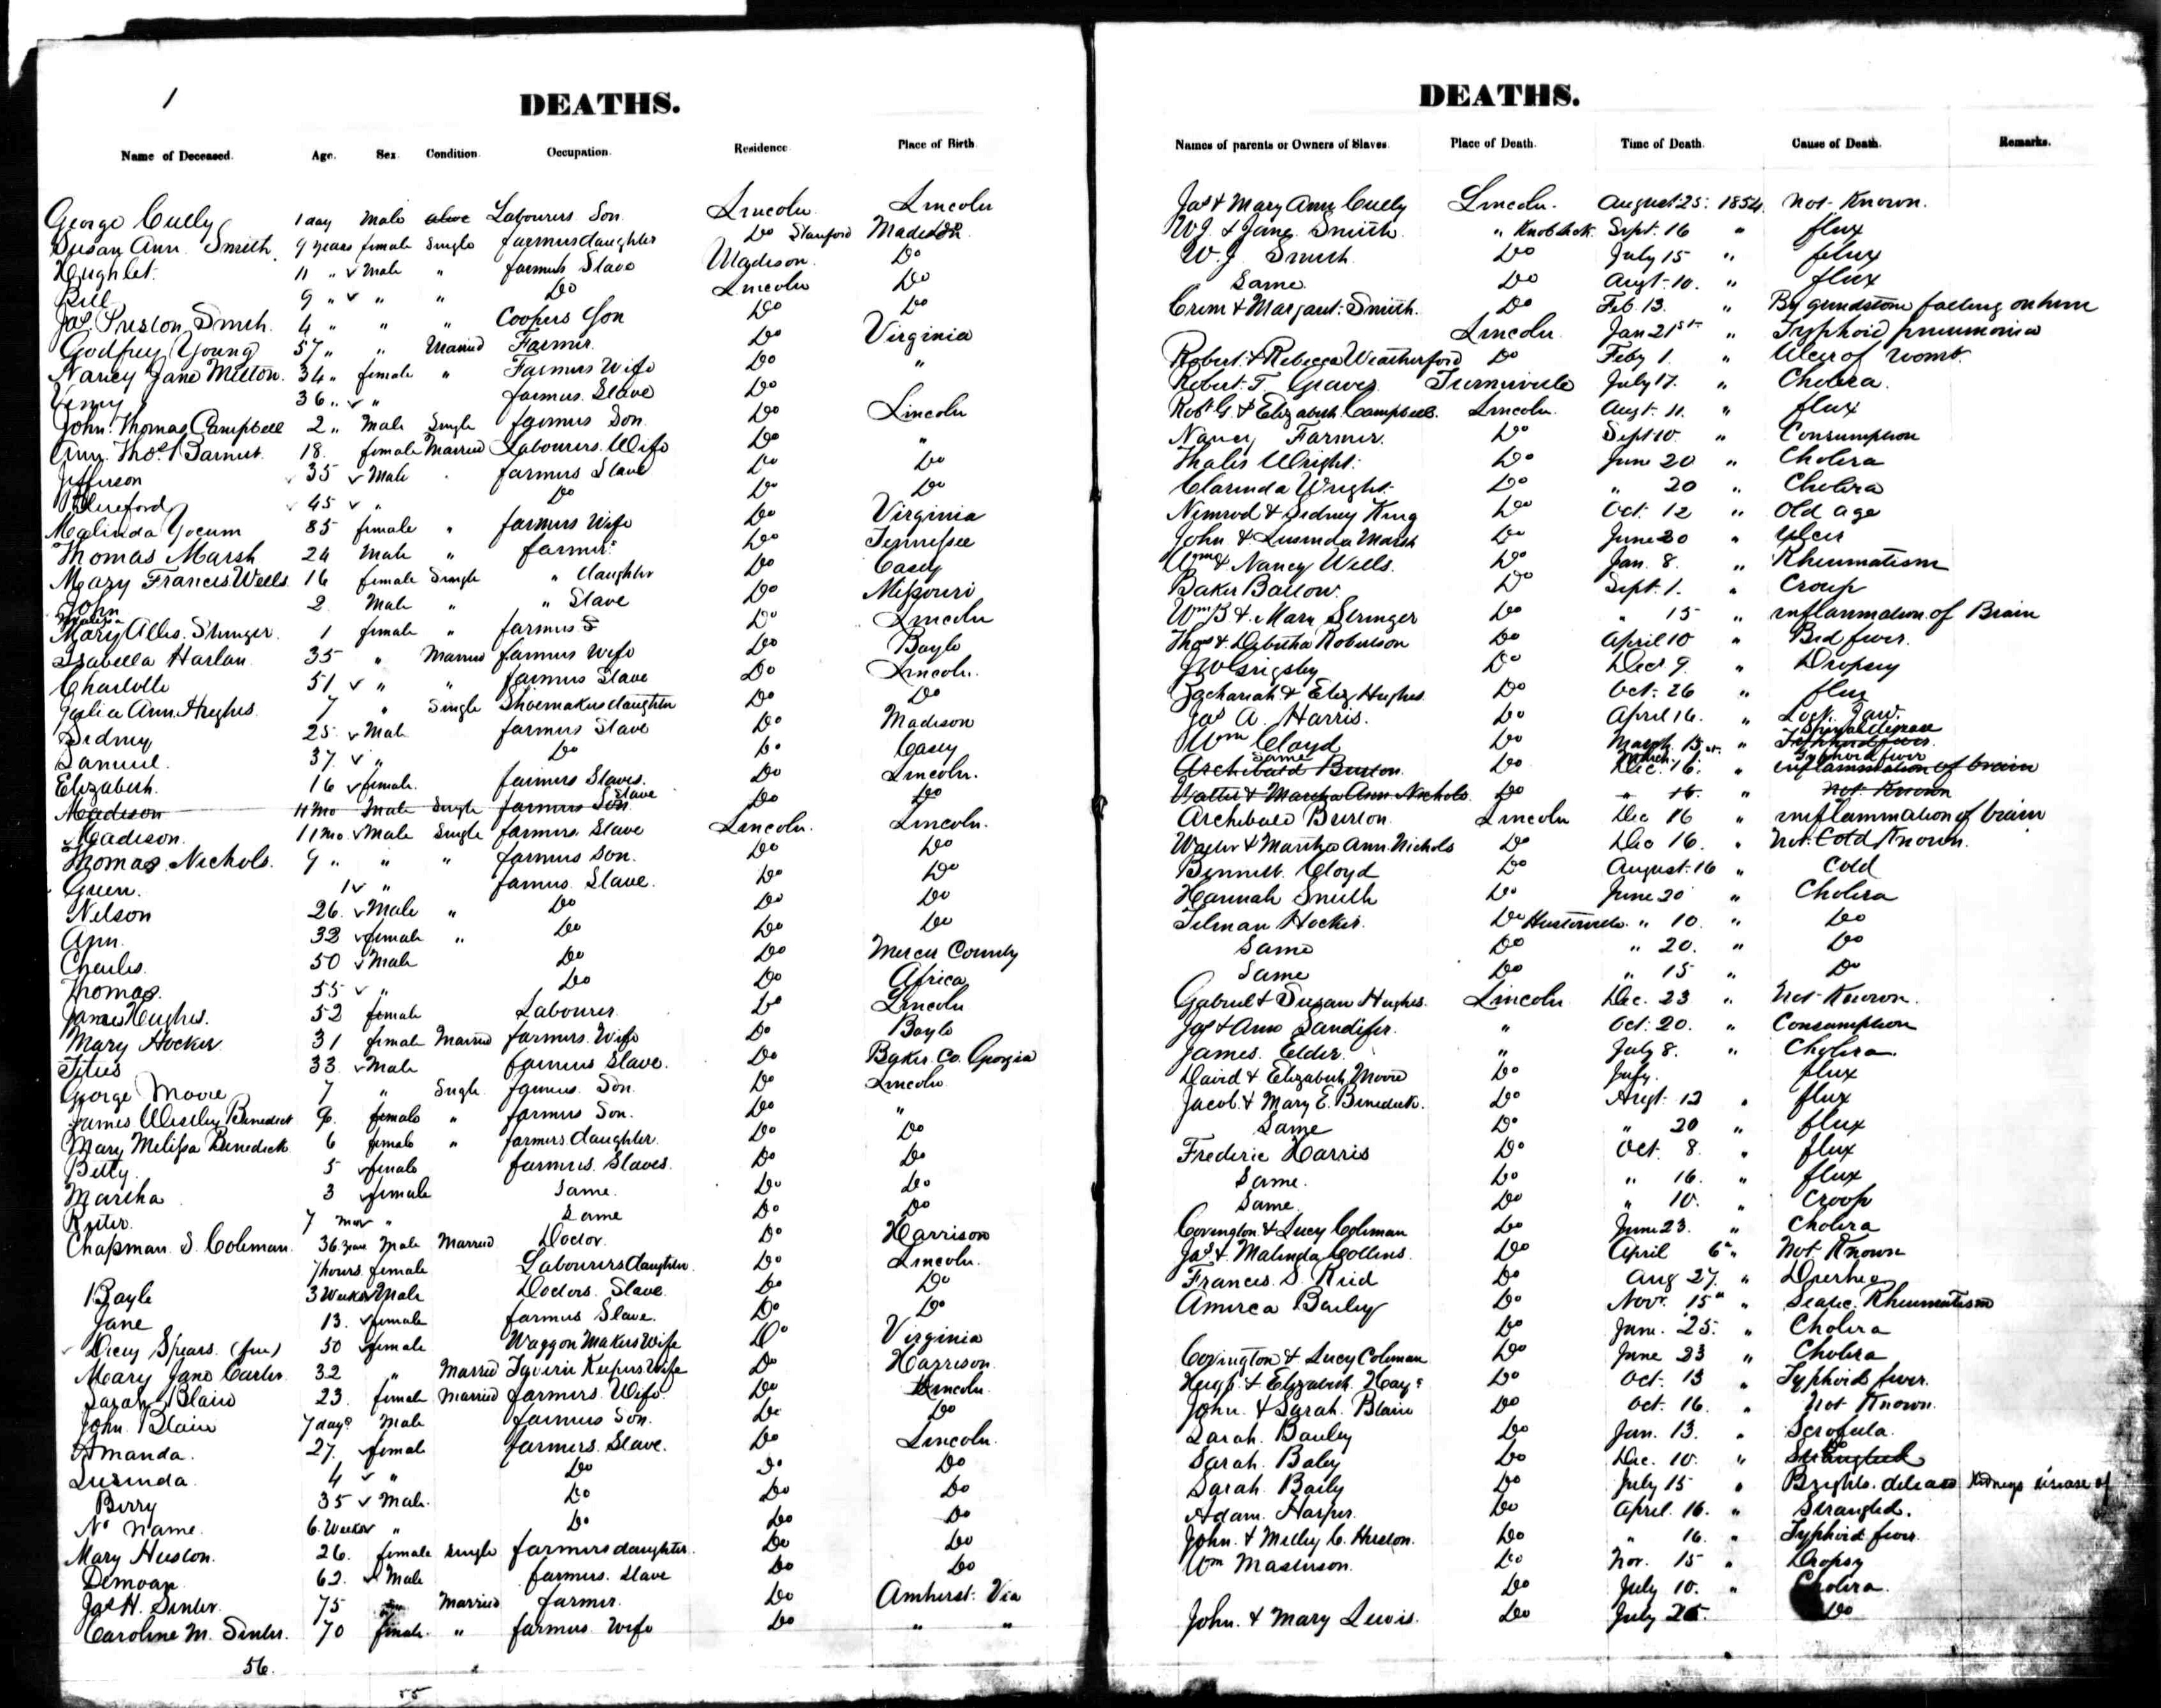 1
DEATHS.
Name of Deceased. Age. Sex. Condition. Occupation. Residence. Place of Birth.
George Cully 1 day Male alive Labourers Son Lincoln Lincoln
Susan Ann Smith 9 years female Single farmers daughter Do Stanford Madison
Hughlet 11 " Male " farmers Slave Madison Do
Bill 9 " " " Do Lincoln Do
Jas. Preston Smith 4 " " " Coopers Son Do Do
Godfrey Young 57 " " Married Farmer Do Virginia
Nancy Jane Melton 34 " female " Farmers Wife Do "
36 " " farmers Slave Do
John Thomas Campbell 2 " Male Single farmers Son Do Lincoln
Ann Thos. Barnes 18 female Married Labourers Wife Do "
Jefferson 35 Male farmers Slave Do Do
Hereford 45 " Do Do Do
Malinda Yocum 85 female " farmers Wife Do Virginia
Thomas Marsh 24 Male " farmer Do Tennessee
Mary Frances Wells 16 female Single " daughter Do Casey
John 2 Male " " Slave Do Missouri
Mary Alles Stringer 1 female " farmers Do Lincoln
Isabella Harlan 35 " Married farmers Wife Do Boyle
Charlotte 51 " " farmers Slave Do Lincoln
Julia Ann Hughes 7 " Single Shoemakers daughter Do Do
Sidney 25 Male farmers Slave Do Madison
Samuel 37 " Do Do Casey
Elizabeth 16 female farmers Slaves Do Lincoln
Madison 11 mo Male Single farmers Son Slave Do Do
Madison 11 mo Male Single farmers Slave Lincoln Lincoln
Thomas Nichols 9 " " " farmers Son Do Do
Green 1 " farmers Slave Do Do
Nelson 26 Male " Do Do Do
Ann 32 female " Do Do Do
Charles 50 Male Do Do Mercer County
Thomas 55 " Do Do Africa
James Hughes 52 female Labourer Do Lincoln
Mary Hocker 31 female Married farmers Wife Do Boyle
Titus 33 Male farmers Slave Do Baker Co. Georgia
George Moore 7 " Single farmers Son Do Lincoln
James Westley Benedict 9 female " farmers Son Do "
Mary Melissa Benedict 6 female " farmers daughter Do Do
Betty 5 female farmers Slaves Do Do
Martha 3 female Same Do Do
7 mos " Same Do Do
Chapman S. Coleman 36 years Male Married Doctor Do Harrison
7 hours female Labourers daughter Do Lincoln
Boyle 3 Weeks Male Doctors Slave Do Do
Jane 13 female farmers Slave Do Do
Dicey Spears (free) 50 female Waggon Makers Wife Do Virginia
Mary Jane Carter 32 " Married Tavern Keepers Wife Do Harrison
Sarah Blain 23 female Married farmers Wife Do Lincoln
John Blain 7 days Male farmers Son Do Do
Amanda 27 female farmers Slave Do Lincoln
Lusinda 4 " Do Do Do
Berry 35 Male Do Do Do
No name 6 Weeks " Do Do Do
Mary Huston 26 female Single farmers daughter Do Do
62 Male farmers Slave Do Do
Jas. H. 75 Married farmer Do Amherst Via
Caroline M. 70 female " farmers Wife Do " "
56
55
DEATHS.
Names of parents or Owners of Slaves. Place of Death. Time of Death. Cause of Death. Remarks.
Jas & Mary Ann Cully Lincoln August 25 1854 Not Known
W.J. & Jane Smith " Knoblick Sept. 16 " flux
W.J. Smith Do July 15 " flux
Same Do Augt. 10 " flux
Margaret Smith Do Feb. 13 " By grindstone falling on him
Lincoln Jan 21st " Typhoid pneumonia
Robert & Rebecca Weatherford Do Feby 1 " Ulcer of womb
Robert T. Graves Turnersville July 17 " Cholera
Robt. G. & Elizabeth Campbell Lincoln Augt. 11 " flux
Nancy Farmer Do Sept 10 " Consumption
Thales Wright Do June 20 " Cholera
Clarinda Wright Do " 20 " Cholera
Nimrod & Sidney King Do Oct. 12 " Old age
John & Lusinda Marsh Do June 30 " Ulcer
Wm. & Nancy Wells Do Jan. 8 " Rheumatism
Baker Do Sept. 1 " Croup
Wm B & Mary Stringer Do " 15 " inflammation of Brain
Thos & Robertson Do April 10 " Bed fever
J W Grigsby Do Dec 9 " Dropsy
Zachariah & Eliz Hughes Do Oct. 26 " flux
Jas A. Harris Do April 16 " Lock Jaw
Wm Cloyd Do March 15 " Spinal disease Typhoid fever
Same Archibald Burton Do March Dec. 16 " Typhoid fever inflammation of brain
Walter & Martha Ann Nichols Do " 16 " Not Known
Archibald Burton Lincoln Dec 16 " inflammation of brain
Walter & Martha Ann Nichols Do Dec 16 " Not Cold Known
Bennett Cloyd Do August 16 " Cold
Hannah Smith Do June 20 " Cholera
Tilman Hocker Do Hustonville " 10 " Do
Same Do " 20 " Do
Same Do " 15 " Do
Gabriel & Susan Hughes Lincoln Dec. 23 " Not Known
Jas & Ann Sandifer " Oct. 20 " Consumption
James Elder " July 8 " Cholera
David & Elizabeth Moore Do July flux
Jacob & Mary E. Benedict Do Augt. 12 " flux
Same Do " 20 " flux
Frederic Harris Do Oct. 8 " flux
Same Do " 16 " flux
Same Do " 10 " Croop
Covington & Lucy Coleman Do June 23 " Cholera
Jas & Malinda Collins Do April 6 " Not Known
Frances S. Reid Do Aug 27 "
America Bailey Do Novr. 15 " Rheumatism
Do June 25 " Cholera
Covington & Lucy Coleman Do June 23 " Cholera
Hugh & Elizabeth Hays Do Oct. 13 " Typhoid fever
John & Sarah Blain Do Oct. 16 " Not Known
Sarah Bailey Do Jan. 13 " Scrofula
Sarah Baley Do Dec. 10 " Strangled
Sarah Baily Do July 15 " Brights disease Kidneys disease of
Adam Harper Do April 16 " Strangled
John & Milley C. Huston Do " 16 " Typhoid fever
Wm Masterson Do Nov. 15 " Dropsy
Do July 10 " Cholera
John & Mary Lewis Do July 25 Do